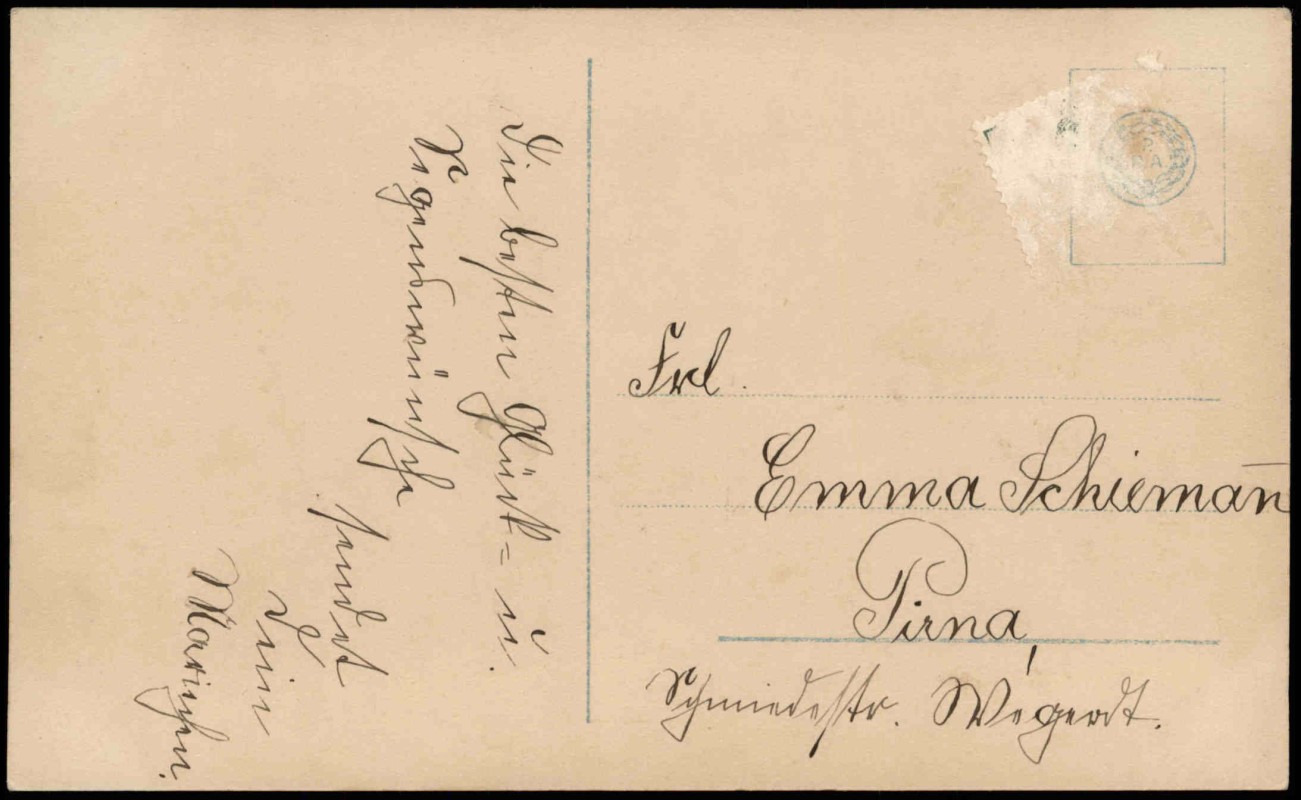 Die besten Glück- u.
Segenswünsche
sendet
Dein
Mariechen.
Frl.
Emma Schiemañ
Pirna,
Schmiedestr.